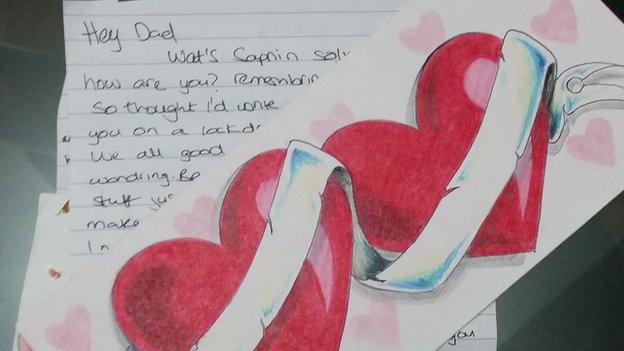 Hey Dad
Wat's Sapnin
how are you? remembrin
So thought I'd write
you on a lockd
We all good
wondring. Be
stuff jus
make
In
you